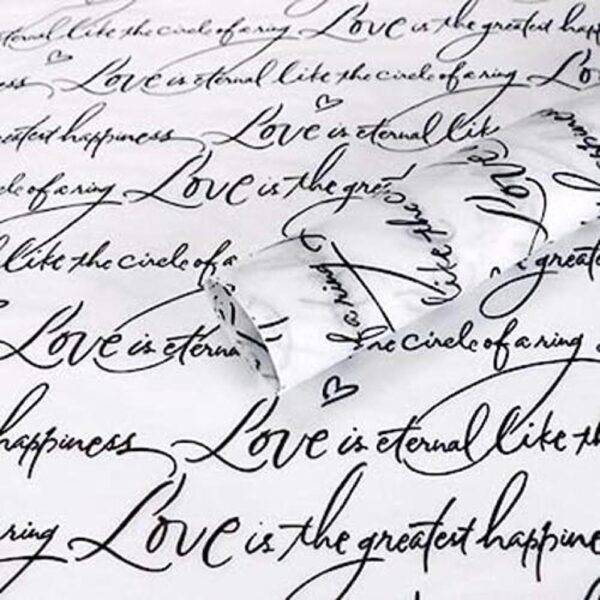 eternal like the circle of a ring Love is the greatest happ
ess Love is eternal like the circle of a ring Lo
eatest happiness Love is eternal lik
cle of a ring Love is the gre
like the circle of a
Love is eterna
happiness Love is eternal like th
ring Love is the greatest happine
a ring
like the c
Love
greate
the circle of a ring